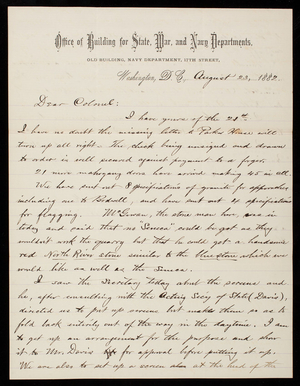 Office of Building for State, War, and Navy Departments,
OLD BUILDING, NAVY DEPARTMENT, 17TH STREET,
Washington, D. C., August 23, 1882.
Dear Colonel:
I have yours of the 21st.
I have no doubt the missing letter & Parker House will
turn up all right - the check being unsigned and drawn
to order is well secured against payment to a forger.
21 more mahogany doors have arrived making 45 in all.
We have sent out 8 specifications of granite for approaches
including one to Bodwell, and have sent out 4 specifications
for flagging. McGowan, the stone man here, was in
today and said that no "Seneca" could be got as they
wouldn't work the quarry but that he could get a handsome
red North River stone similar to the blue stone which we
would like as well as the Seneca.
I saw the Secretary today about the screens and
he, after consulting with the Acting Secy of State (Davis),
directed us to put up screens but make them so as to
fold back entirely out of the way in the daytime. I am
to get up an arrangement for the purpose and show
it to Mr. Davis for approval before putting it up.
We are also to set up a screen also at the end of the